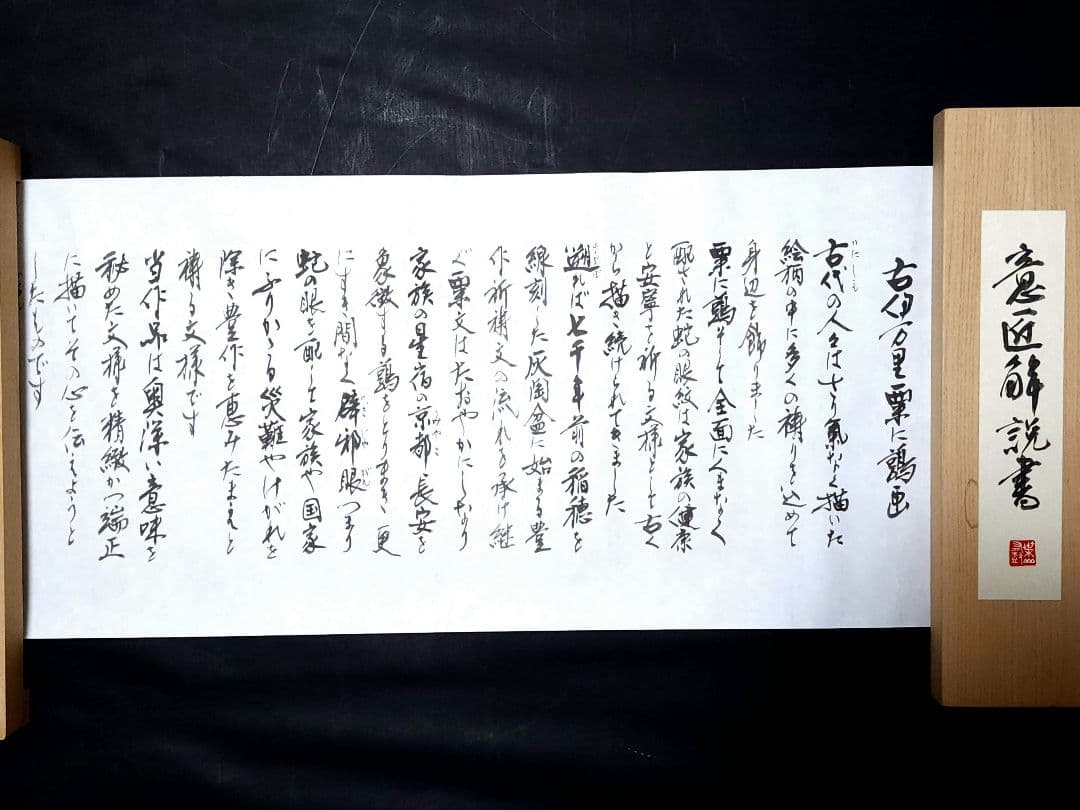 意匠解説書
古伊万里粟に鶉画
古代の人々はさり気なく描いた
いにしえ
絵柄の中に多くの祷りを込めて
身辺を飾りました
粟に鶉そして全面にくまなく
配された蛇の眼紋は家族の健康
と安寧を祈る文様として古く
から描き続けられてきました
遡れば七千年前の稲穂を
さかのぼ
線刻した灰陶盆に始まる豊
作祈祷文の流れを承け継
ぐ粟文はたおやかにしなり
家族の星宿の京都長安を
みやこ
象徴する鶉をとりまき更
にすき間なく辟邪眼つまり
蛇の眼を配して家族や国家
にふりかかる災難やけがれを
除き豊作を恵みたまえと
祷る文様です
当作品は奥深い意味を
秘めた文様を精緻かつ端正
に描いてその心を伝えようと
したものです